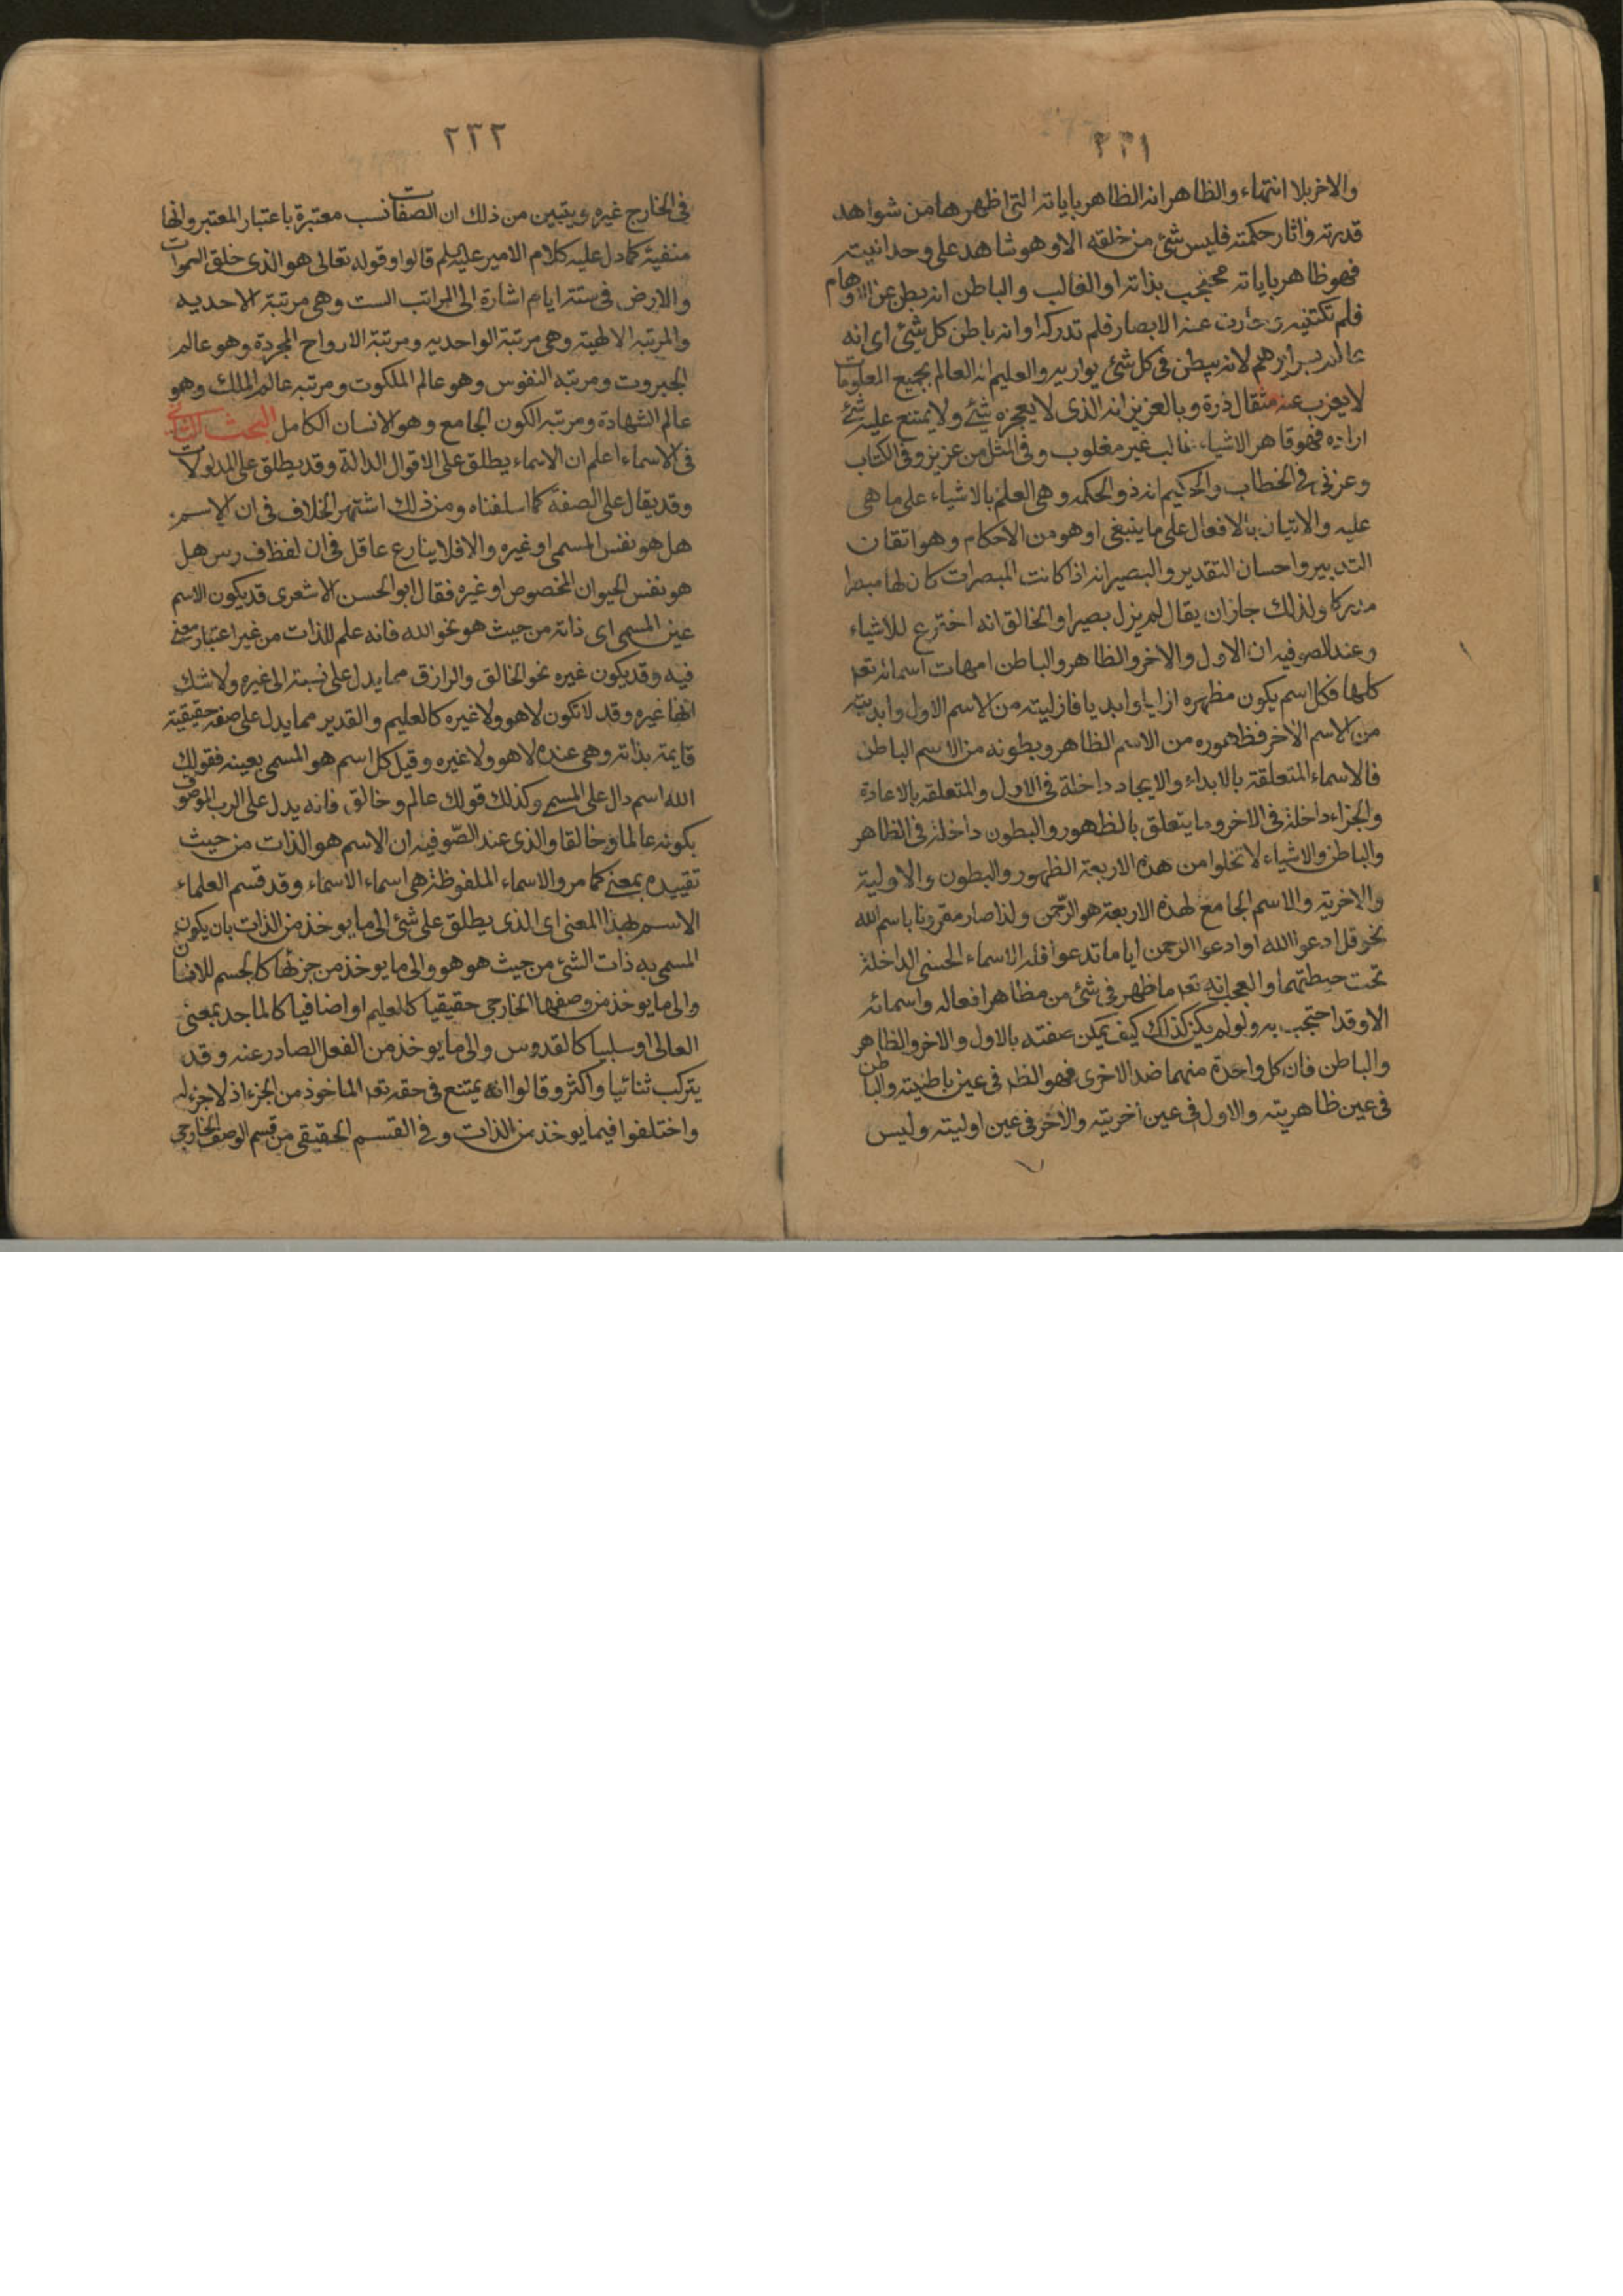 ٢٣١
والاخر بلا انتهاء والظاهر انه الظاهر باياته التى اظهرها من شواهد
قدرته واثار حكمته فليس شئ من خلقه الا وهو شاهد على وحدانيته
فهو ظاهر باياته محتجب بذاته او الغالب والباطن انه بطن عن الاوهام
فلم تكتنفه عنه الابصار فلم تدركه او انه باطن كل شئ اى انه
عالم لانه يبطن فى كل شئ يواريه والعليم انه العالم بجميع المعلومات
لا يعزب عنه مثقال ذرة وبالعزيز انه الذى لا يعجزه شئ ولا يمتنع عليه شئ
اراده فهو قاهر الاشياء غالب غير مغلوب وفى المثل من عزيز وفى الكتاب
وعزنى فى الخطاب والحكيم انه ذو الحكمه وهى العلم بالاشياء على ما هى
عليه والاتيان بالافعال على ما ينبغى او هو من الاحكام وهو اتقان
التدبير واحسان التقدير والبصير انه اذا كانت المبصرات كان لها مبصرا
مدركا ولذلك جاز ان يقال لم يزل بصيرا والخالق انه اخترع للاشياء
وعند الصوفيه ان الاول والاخر والظاهر والباطن امهات اسمائه تعه
كلها فكل اسم يكون مظهره ازليا وابديا فازليته من الاسم الاول وابديته
من الاسم الاخر فظهوره من الاسم الظاهر وبطونه من الاسم الباطن
فالاسماء المتعلقة بالابداء والايجاد داخلة فى الاول والمتعلقه بالاعادة
والجزاء داخلة فى الاخر وما يتعلق بالظهور والبطون داخلة فى الظاهر
والباطن والاشياء لا تخلوا من هذه الاربعة الظهور والبطون والاولية
والاخرية والاسم الجامع لهذه الاربعة هو الرّحمن ولذا صار مقرونا باسم الله
نحو قل ادعوا الله او ادعوا الرحمن اياما تدعوا فله الاسماء الحسنى الداخلة
تحت حيطتهما والعجب انه تعه ما ظهر فى شئ من مظاهر افعاله واسمائه
الا وقد احتجب به ولو لم يكن كذلك كيف يمكن صفته بالاول والاخر والظاهر
والباطن فان كل واحدة منهما ضد الاخرى فهو الظه فى عين باطنيته والباطن
فى عين ظاهريته والاول فى عين اخريته والاخر فى عين اوليته وليس
٢٣٢
فى الخارج غيره ويتبين من ذلك ان الصفات نسب معتبرة باعتبار المعتبر وانها
منفية كما دل عليه كلام الامير عليه السلم قالوا وقوله تعالى هو الذى خلق السموات
والارض فى ستة ايام اشارة الى المراتب الست وهى مرتبة الاحديه
والمرتبه الالهية وهى مرتبة الواحديه ومرتبة الارواح المجردة وهو عالم
الجبروت ومرتبه النفوس وهو عالم الملكوت ومرتبه عالم الملك وهو
عالم الشهادة ومرتبه الكون الجامع وهو الانسان الكامل البحث الثانى
فى الاسماء اعلم ان الاسماء يطلق على الاقوال الدالة وقد يطلق على المدلولات
وقد يقال على الصفة كما اسلفناه ومن ذلك اشتهر الخلاف فى ان الاسم
هل هو نفس المسمى او غيره والا فلا ينازع عاقل فى ان لفظ ف رس هل
هو نفس الحيوان المخصوص او غيره فقال ابو الحسن الاشعرى قد يكون الاسم
عين المسمى اى ذاته من حيث هو نحو الله فانه علم للذات من غير اعتبار معنى
فيه وقد يكون غيره نحو الخالق والرازق مما يدل على نسبته الى غيره ولا شك
انها غيره وقد لا تكون لا هو ولا غيره كالعليم والقدير مما يدل على صفة حقيقية
قايمة بذاته وهى عنده لا هو ولا غيره وقيل كل اسم هو المسمى بعينه فقولك
الله اسم دال على المسمى وكذلك قولك عالم وخالق فانه يدل على الرب الموصوف
بكونه عالما وخالقا والذى عند الصّوفيه ان الاسم هو الذات من حيث
تقييده بمعنى كما مر والاسماء الملفوظة هى اسماء الاسماء وقد قسم العلماء
الاسم بهذا المعنى اى الذى يطلق على شئ الى ما يوخذ من الذات بان يكون
المسمى به ذات الشئ من حيث هو هو والى ما يوخذ من جزئها كالجسم للانسان
والى ما يوخذ من وصفها الخارجى حقيقيا كالعليم او اضافيا كالماجد بمعنى
العالى او سلبيا كالقدوس والى ما يوخذ من الفعل الصادر عنه وقد
يتركب ثنائيا واكثر وقالوا انه يمتنع فى حقه تعه الماخوذ من الجزء اذ لا جزء له
واختلفوا فيما يوخذ من الذات وفى القسم الحقيقى من قسم الوصف الخارجى